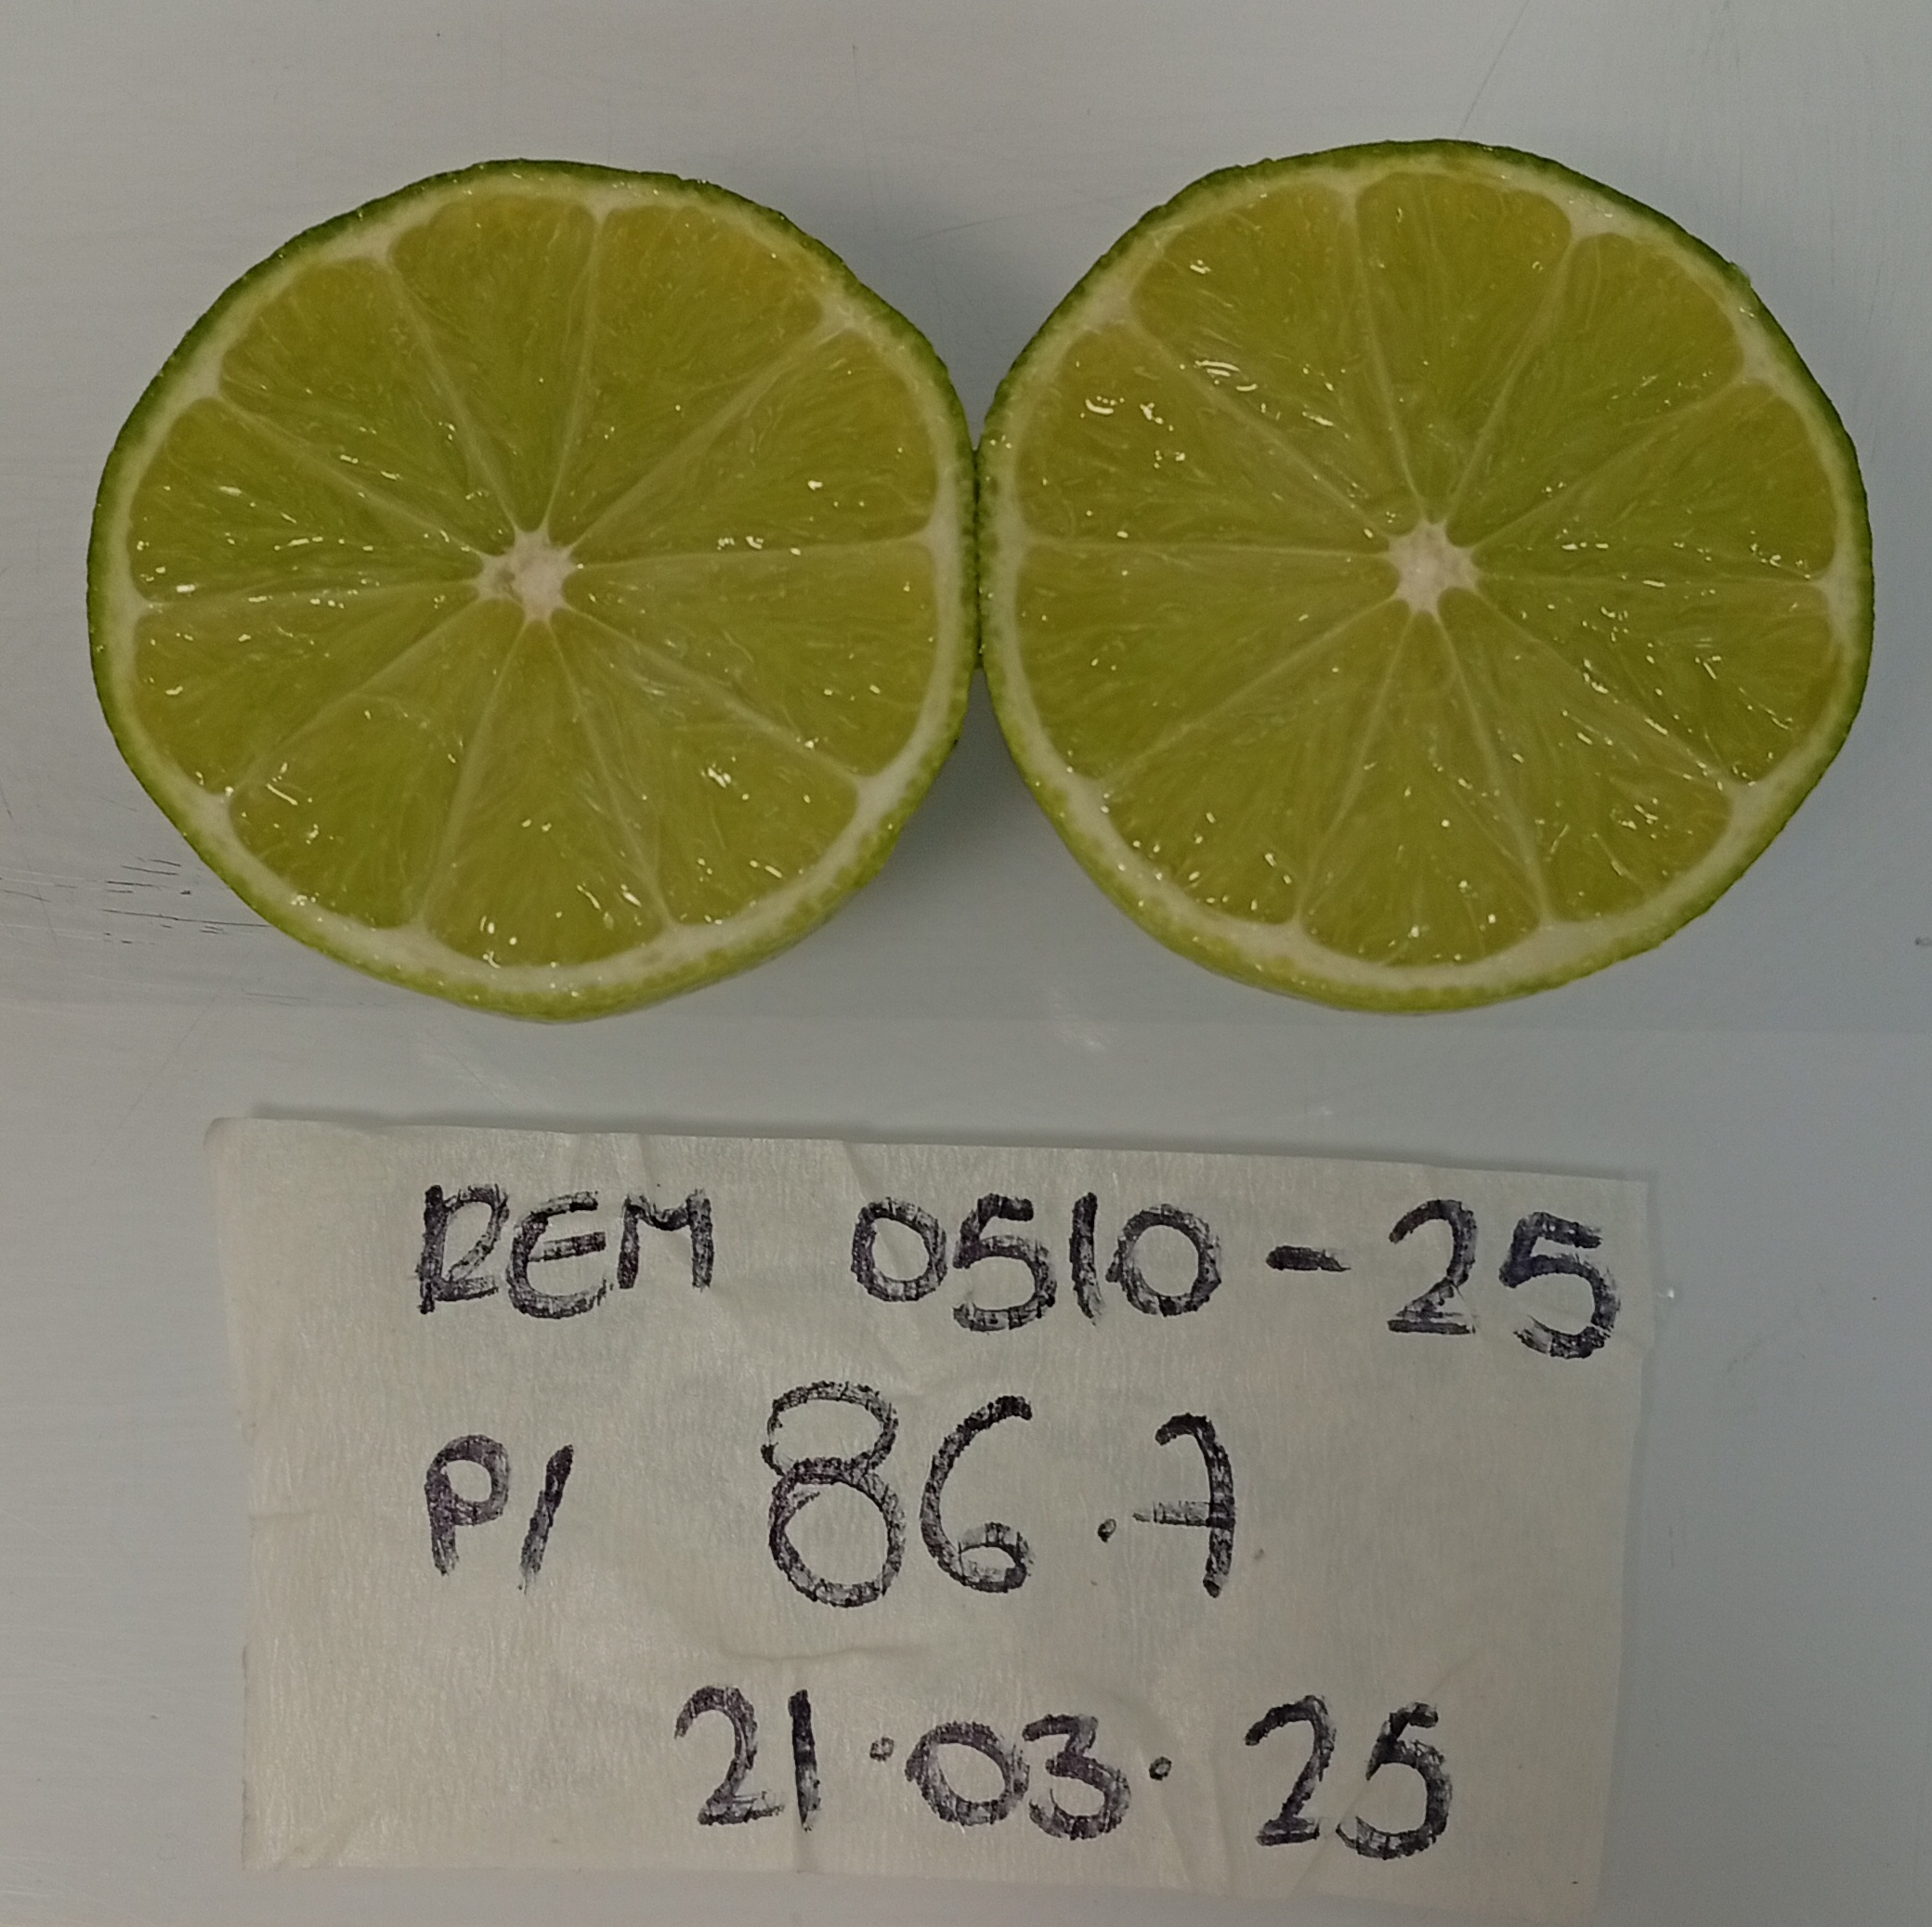 REM 0510-25
P1 86.7
21.03.25